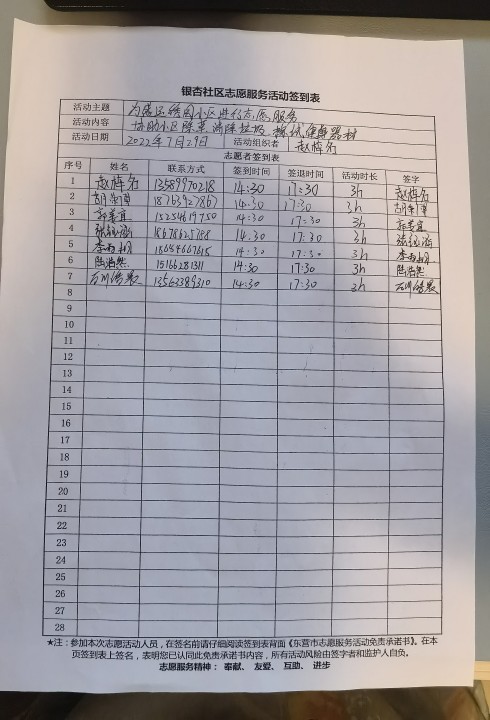 银杏社区志愿服务活动签到表
活动主题 为 小区进行志愿服务
活动内容 协助小区除草、清除垃圾、擦拭健身器材
活动日期 2022年7月29日 活动组织者 赵梓
志愿者签到表
序号 姓名 联系方式 签到时间 签退时间 活动时长 签字
1 赵梓 13589970218 14:30 17:30 3h 赵梓
2 胡 14:30 17:30 3h 胡
3 郭美宜 15254619750 14:30 17:30 3h 郭美宜
4 张 14:30 17:30 3h 张
5 李 14:30 17:30 3h 李
6 陈浩然 15166281311 14:30 17:30 3h 陈浩然
7 13563389310 14:30 17:30 3h
8
9
10
11
12
13
14
15
16
17
18
19
20
21
22
23
24
25
26
27
28
★注：参加本次志愿活动人员，在签名前请仔细阅读签到表背面《东营市志愿服务活动免责承诺书》。在本
页签到表上签名，表明您已认同此免责承诺书内容，所有活动风险由签字者和监护人自负。
志愿服务精神： 奉献、 友爱、 互助、 进步